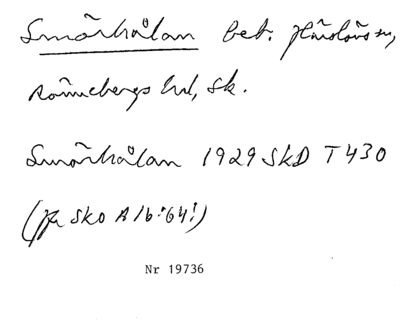 Smörhålan bet. Härslövs sn,
Rönnebergs hd, Sk.
Smörhålan 1929 SkD T430
(jfr SkO A 16:64!)
Nr 19736